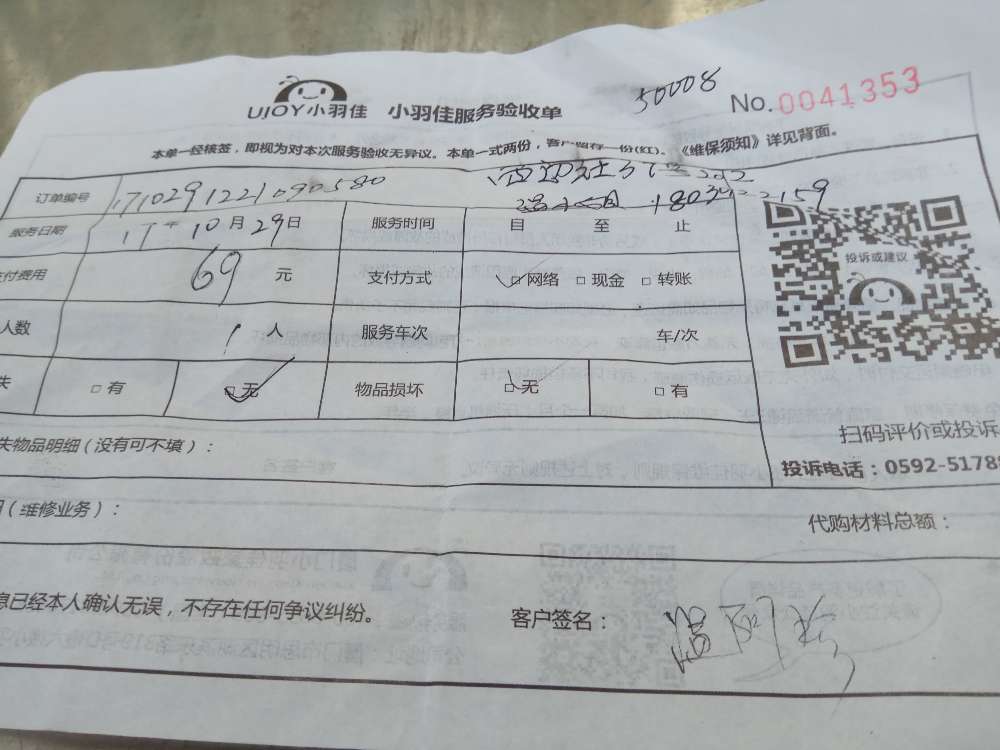 50008
UJOY小羽佳 小羽佳服务验收单 No.0041353
本单一经核签，即视为对本次服务验收无异议。本单一式两份，客户留存一份(红)。《维保须知》详见背面。
订单编号 1710291221090580
服务日期 17年10月29日 服务时间 自 至 止
付费用 69 元 支付方式 网络 现金 转账
人数 1 人 服务车次 车/次
失 有 无 物品损坏 无 有
投诉或建议
扫码评价或投诉
失物品明细（没有可不填）：
投诉电话：0592-5178
（维修业务）： 代购材料总额：
息已经本人确认无误，不存在任何争议纠纷。 客户签名：